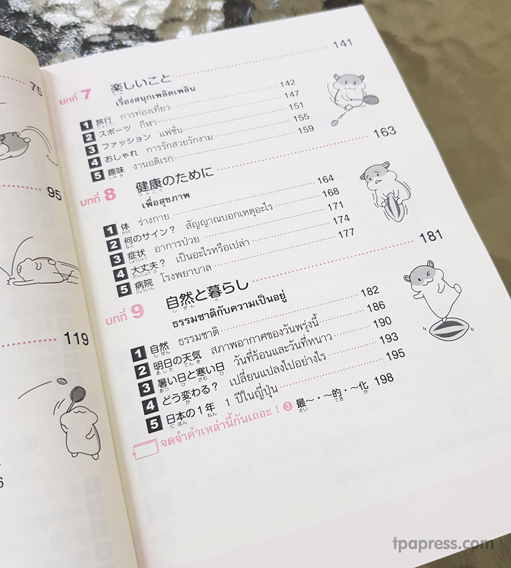 75
95
119
6
บทที่ 7 楽しいこと 141
เรื่องสนุกเพลิดเพลิน
1 旅行 การท่องเที่ยว 142
2 スポーツ กีฬา 147
3 ファッション แฟชั่น 151
4 おしゃれ การรักสวยรักงาม 155
5 趣味 งานอดิเรก 159
บทที่ 8 健康のために 163
เพื่อสุขภาพ
1 体 ร่างกาย 164
2 何のサイン? สัญญาณบอกเหตุอะไร 168
3 症状 อาการป่วย 171
4 大丈夫? เป็นอะไรหรือเปล่า 174
5 病院 โรงพยาบาล 177
บทที่ 9 自然と暮らし 181
ธรรมชาติกับความเป็นอยู่
1 自然 ธรรมชาติ 182
2 明日の天気 สภาพอากาศของวันพรุ่งนี้ 186
3 暑い日と寒い日 วันที่ร้อนและวันที่หนาว 190
4 どう変わる? เปลี่ยนแปลงไปอย่างไร 193
5 日本の1年 1 ปีในญี่ปุ่น 195
จดจำคำเหล่านี้กันเถอะ! 3 最〜・〜的・〜化 198
tpapress.com